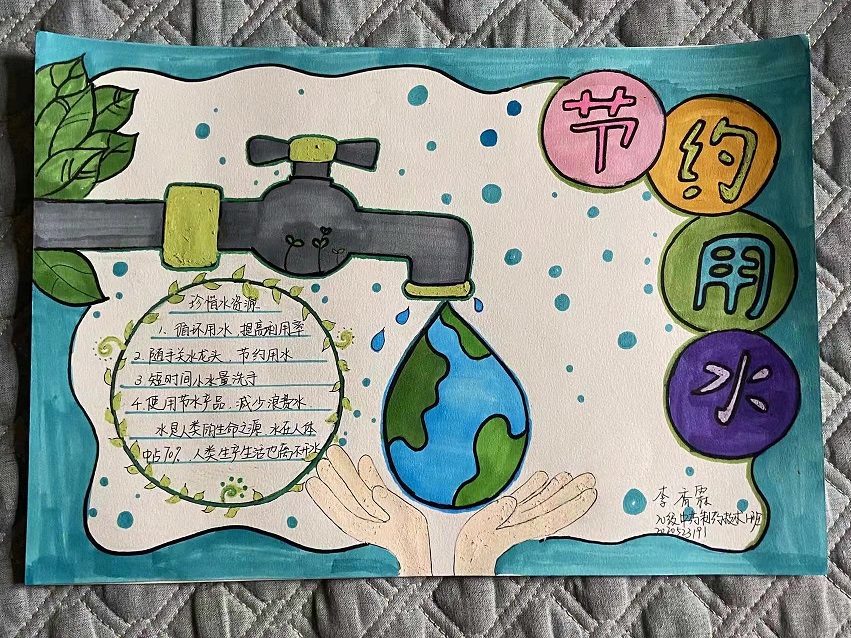 节约用水
珍惜水资源
1. 循环用水,提高利用率
2.随手关水龙头、节约用水
3 短时间小水量洗手
4.使用节水产品.减少浪费水
水是人类的生命之源.水在人体
中占70%.人类生产生活也离不开水
李香霖
20级中药制药技术1班
2020523191